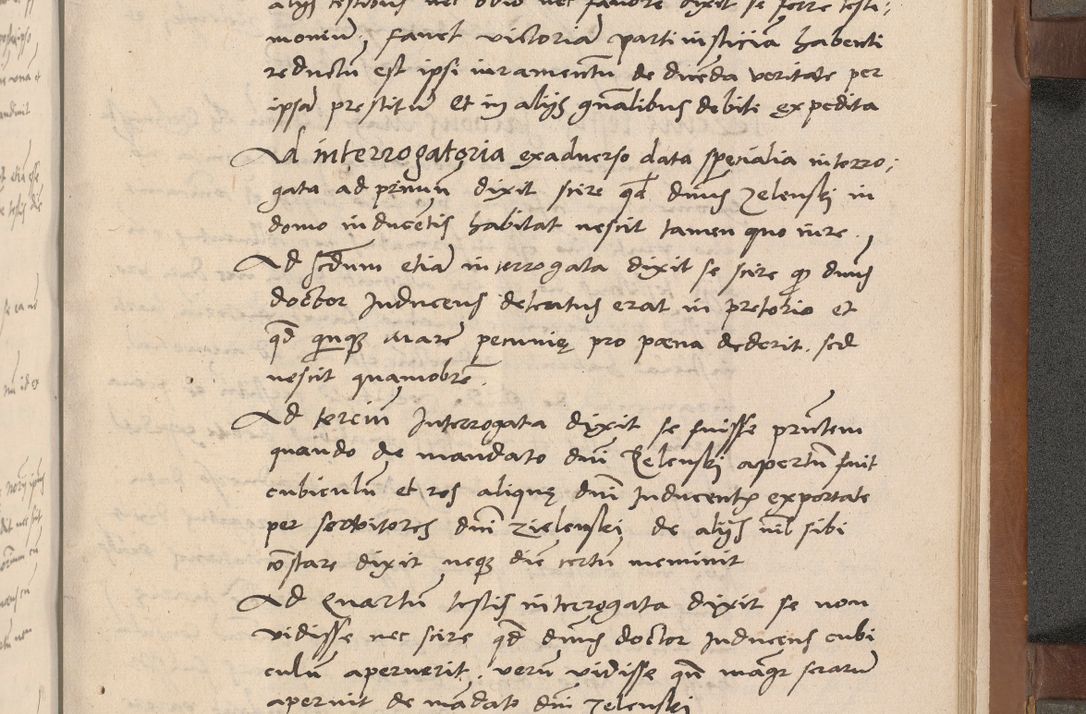 alijs testibus nec odio nec fauore dixit se ferre testi¬
moniũ, fauet victoriã parti iusticiã habenti
reductũ est ipsi iuramentũ de dicẽda veritate per
ipsã prestitũ et in alijs gñalibus debite expedita
Ad interrogatoria exaduerso data specialia interro¬
gata ad primũ dixit scire qd dnus Zelenski in
domo inducentis habitat nescit tamen quo iure.
Ad scdum etiã interrogata dixit se scire q dnus
doctor Inducens detentus erat in pretorio et
qd quinq marc pecunię pro pœna dederit, sed
nescit quamobrẽ.
Ad terciũ Interrogata dixit se fuisse prñtem
quando de mandato dni Zelenski apertũ fuit
cubiculũ et res aliquę dni Inducentis exportate
per seruitores dni Zielenski, de alijs nil sibi
cõstare dixit neq diẽ certũ meminit
Ad Quartũ testis interrogata dixit se non
vidisse nec scire qd dnus doctor Inducens cubi
culũ aperuerit, verũ vidisse qñ magr serarũ
aperuit de mãdato dni Zelenski